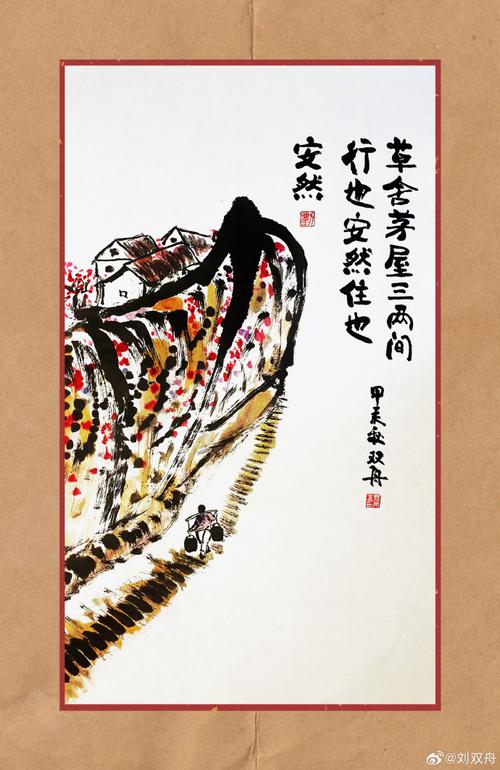 草舍茅屋三两间
行也安然住也
安然
甲辰秋双舟
@刘双舟